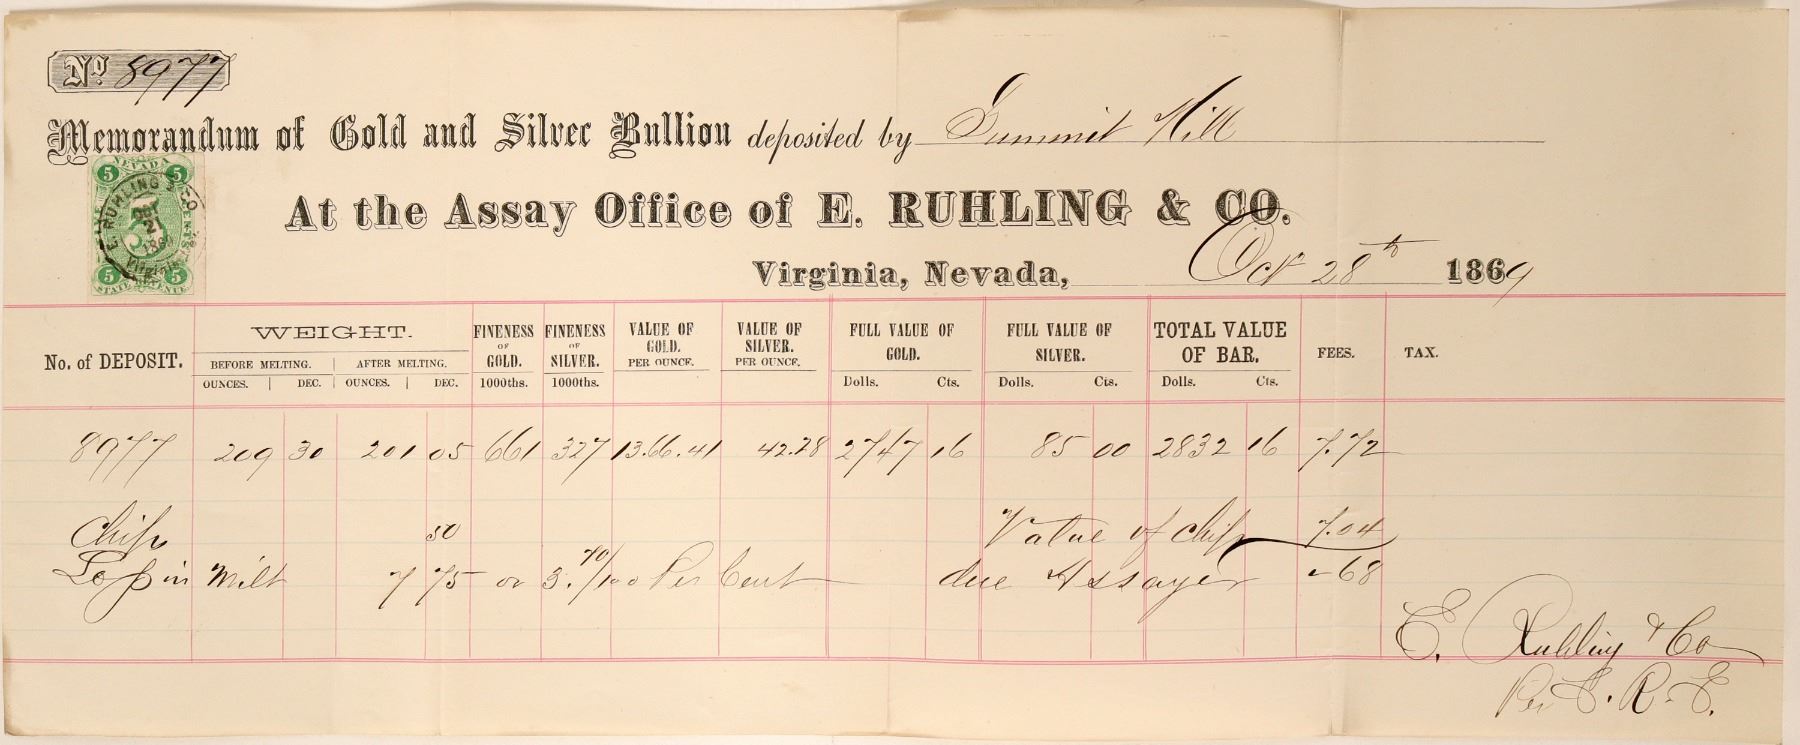 No. 8977
Memorandum of Gold and Silver Bullion deposited by Summit Mill
NEVADA
5 5
E. RUHLING & CO
OCT
5 5
STATE REVENUE
At the Assay Office of E. RUHLING & CO.
Virginia, Nevada, Oct 28th 1869
No. of DEPOSIT. WEIGHT. FINENESS OF GOLD. 1000ths. FINENESS OF SILVER. 1000ths. VALUE OF GOLD. PER OUNCE. VALUE OF SILVER. PER OUNCE. FULL VALUE OF GOLD. FULL VALUE OF SILVER. TOTAL VALUE OF BAR. FEES. TAX.
BEFORE MELTING. AFTER MELTING.
OUNCES. DEC. OUNCES. DEC. Dolls. Cts. Dolls. Cts. Dolls. Cts.
8977 209 30 201 05 661 327 13.66.41 42.28 2747 16 85 00 2832 16 7.72
Chips 50 Value of Chips 7.04
Loss in Melt 7 75 or 3.70/100 Per Cent due Assayer 68
E. Ruhling & Co
Per